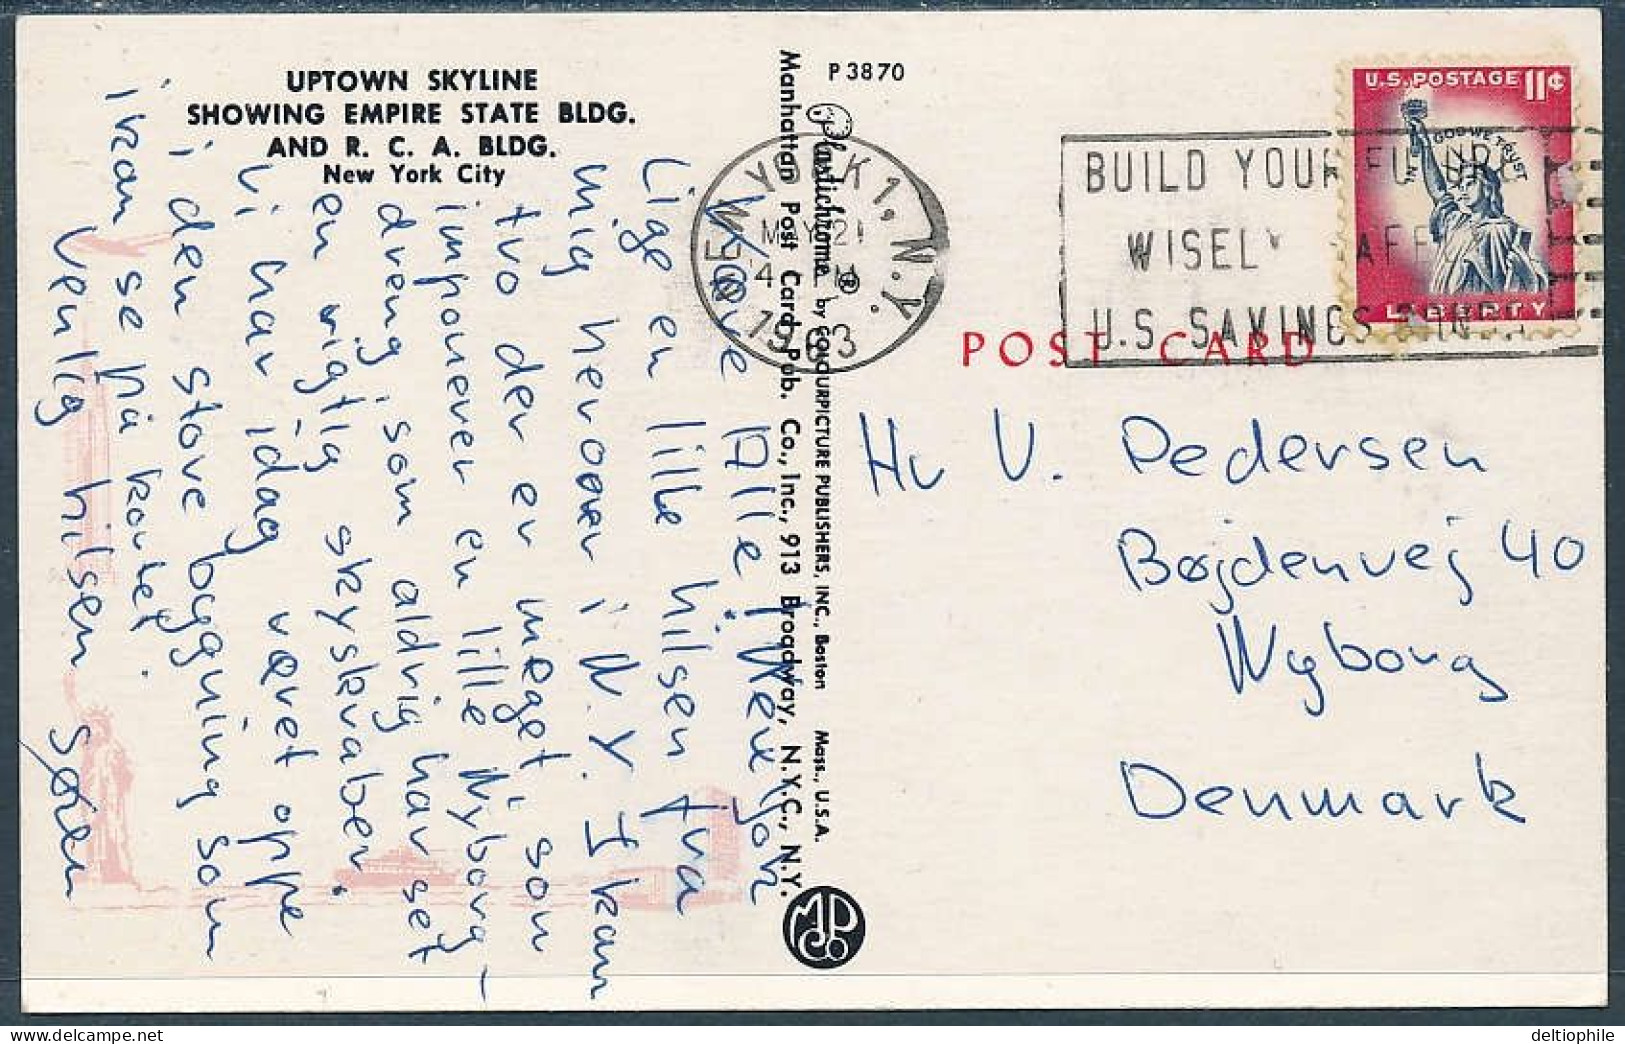 UPTOWN SKYLINE
SHOWING EMPIRE STATE BLDG.
AND R. C. A. BLDG.
New York City
P3870
Plastichrome ® by COLOURPICTURE PUBLISHERS, INC., Boston Mass., U.S.A.
Manhattan Post Card Pub. Co., Inc., 913 Broadway, N.Y.C., N.Y.
NEW YORK 1, N.Y.
MAY 21
1963
BUILD YOUR FUTURE
WISELY SAFELY
U.S. SAVINGS BONDS
U.S. POSTAGE 11¢
IN GOD WE TRUST
LIBERTY
POST CARD
Kære Alle i
Lige en lille hilsen fra
mig herover i N.Y. I kan
tro der er meget, som
imponerer en lille Nyborg-
dreng, som aldrig har set
en rigtig skyskraber.
Vi har idag været oppe
i den store bygning som
i kan se på kortet.
Venlig hilsen Søren
Hr V. Pedersen
Bøjdenvej 40
Nyborg
Denmark
MPCo
deltiophile